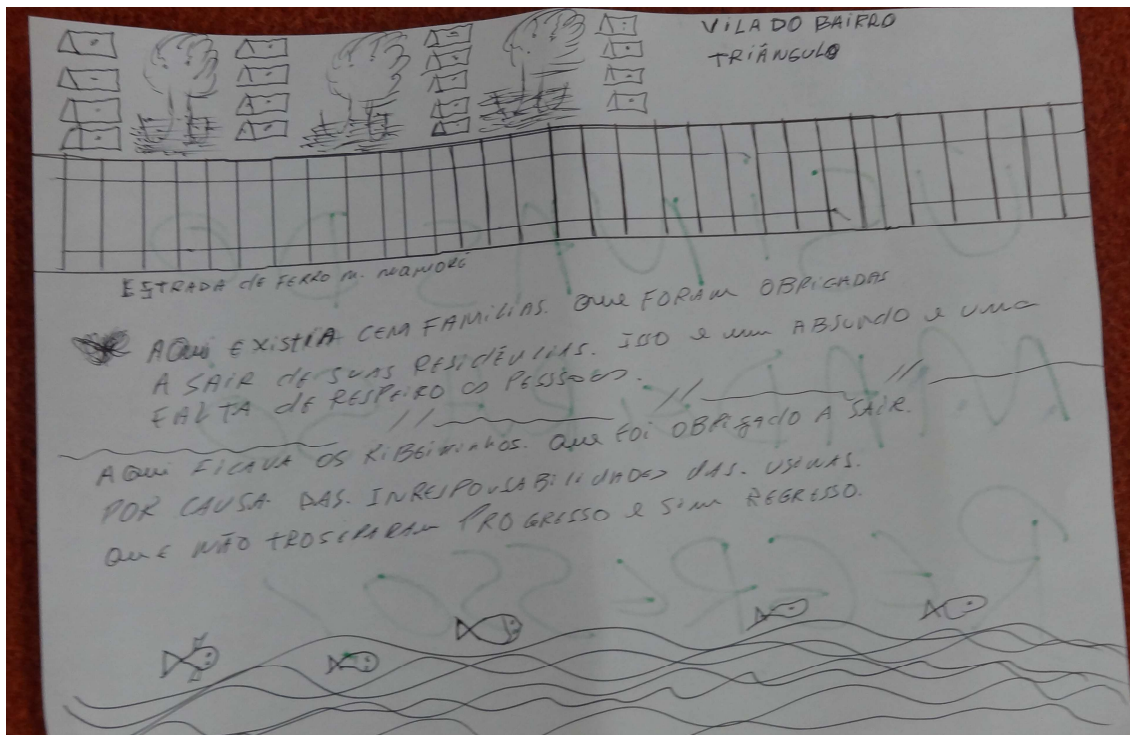 VILA DO BAIRRO
TRIÂNGULO
ESTRADA de FERRO M. MAMORÉ
AQui EXISTIA CEM FAMILIAS. QuE FORAM OBRIGADAS
A SAIR de SUAS RESIDÊNCIAS. ISSO e um ABSURDO e uma
FALTA de RESPEIRO as PESSOES.
AQui FICAVA OS RiBEirinhos. QuE foi OBRigado A SAIR.
POR CAUSA DAS. INRESPONSABILIDADES DAS. USINAS.
QuE NÃO TROSERAM PROGRESSO e Sim REGRESSO.
REGRESSO